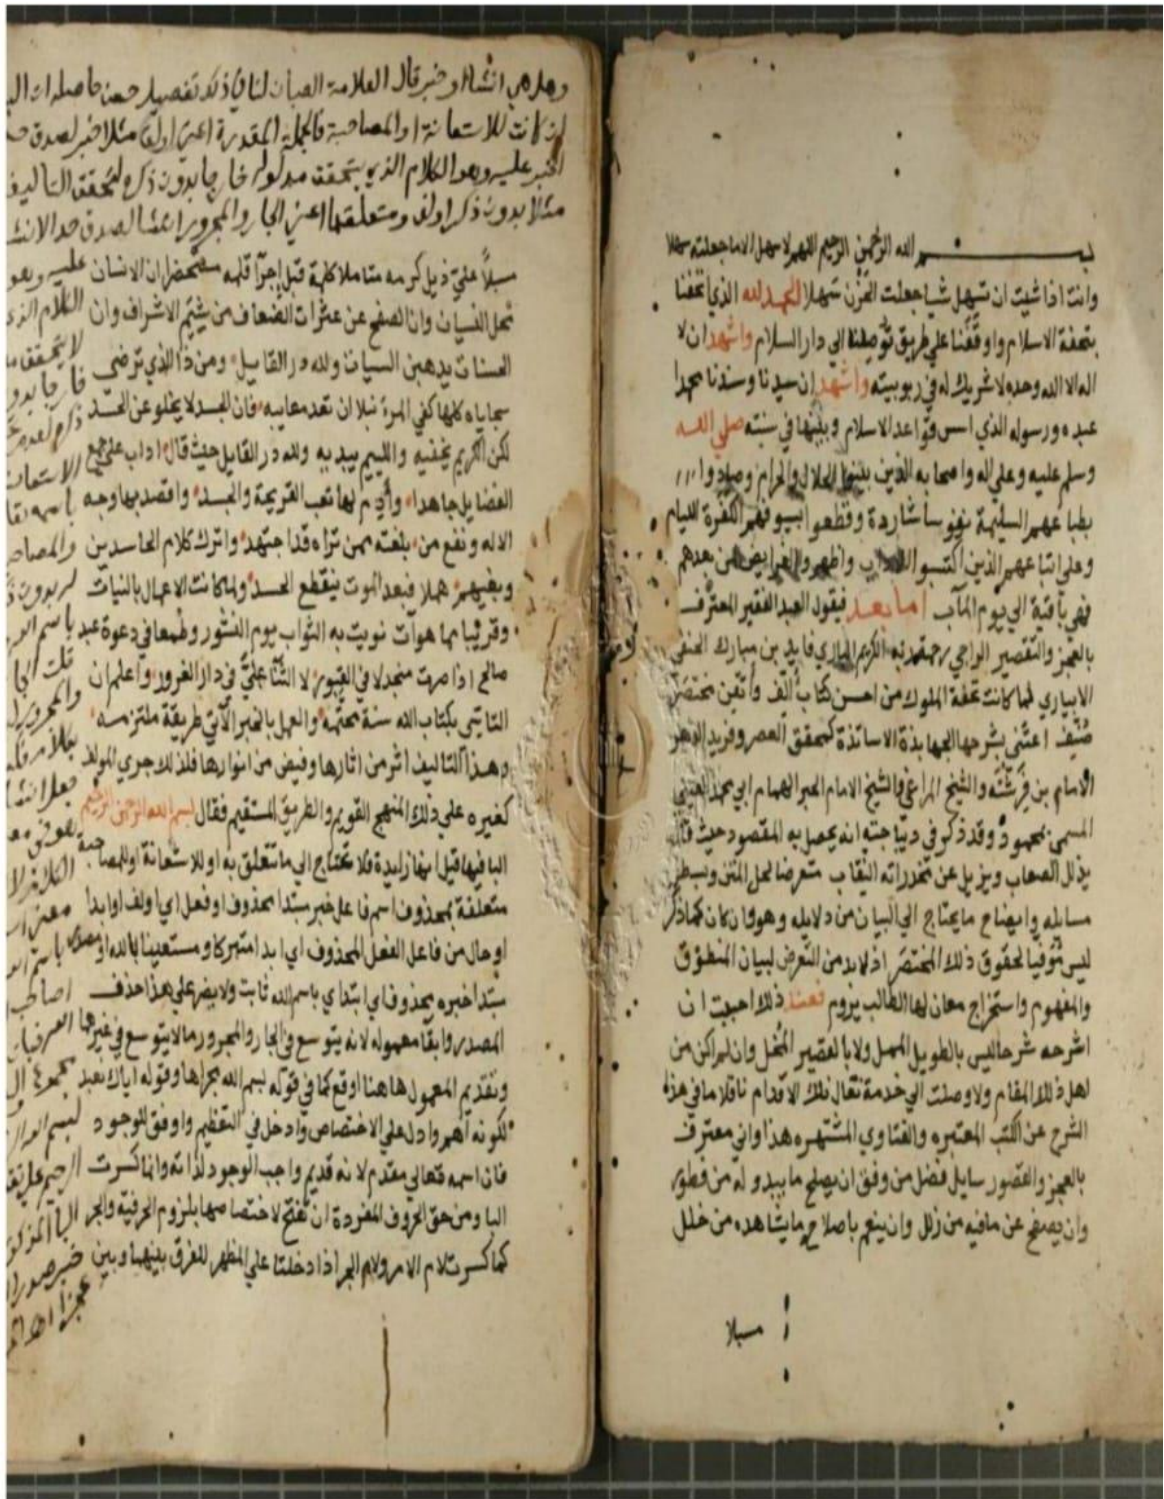 بسم الله الرحمن الرحيم اللهم لا سهل الا ما جعلته سهلا
وانت اذا شيت ان تسهل شيا جعلت الحزن سهلا الحمد لله الذي اتحفنا
بتحفة الاسلام واوقفنا علي طريق توصلنا الي دار السلام واشهد ان لا
اله الا الله وحده لا شريك له في ربوبيته واشهد ان سيدنا وسندنا محمدا
عبده ورسوله الذي اسس قواعد الاسلام وبينها في سنته صلي الله
وسلم عليه وعلي اله واصحابه الذين بينوا الحلال والحرام وصادوا
بطباعهم السليمة نفوسا شاردة وقطعوا بسيوفهم الكفرة الليام
وعلي اتباعهم الذين اكتسبوا الاداب واظهروا الفرايض لمن بعدهم
فهي باقية الي يوم المآب اما بعد فيقول العبد الفقير المعترف
بالعجز والتقصير الراجي رحمة ربه الكريم الباري فايد بن مبارك الحنفي
الابياري لما كانت تحفة الملوك من احسن كتاب ألف واتقن مختصر
صنف اعتنى بشرحها الجهابذة الاساتذة كمحقق العصر وفريد الدهر
الامام بن فرشته والشيخ المراغي والشيخ الامام الحبر الهمام ابي محمد العيني
المسمى بمحمود وقد ذكر في ديباجته انه يحصل به المقصود حيث قال
يذلل الصعاب ويزيل عن مخدراته النقاب متعرضا لحل المتن وبسط
مسايله وايضاح ما يحتاج الي البيان من دلايله وهو وان كان كما ذكر
ليس موفيا لحقوق ذلك المختصر اذ لا بد من التعرض لبيان المنطوق
والمفهوم واستخراج معان لها الطالب يروم فعند ذلك احببت ان
اشرحه شرحا ليس بالطويل الممل ولا بالقصير المخل وان لم اكن من
اهل ذلك المقام ولا وصلت الي خدمة نعال تلك الاقدام ناقلا ما في هذا
الشرح عن الكتب المعتبره والفتاوي المشتهره هذا واني معترف
بالعجز والقصور سايل فضل من وفق ان يصلح ما يبدو له من فطور
وان يصفح عن ما فيه من زلل وان ينعم باصلاح ما يشاهده من خلل
مسبلا
وهل هي انشاء او خبر قال العلامة الصبان لنا في ذلك تفصيل حسن حاصله ان
ان كانت للاستعانة او المصاحبة فالجملة المقدرة اعني اولف مثلا خبر لصدق
الخبر عليه وهو الكلام الذي يتحقق مدلوله خارجا بدون ذكره لتحقق التاليف
مثلا بدون ذكر اولف ومتعلقها اعني الجار والمجرور انشا لصدق حد الانشا
مسبلا علي ذيل كرمه متاملا كلمة قبل اجرآ قلمه مستحضرا ان الانسان
محل النسيان وان الصفح عن عثرات الضعاف من شيم الاشراف وان
الحسنات يذهبن السيات ولله در القايل ومن ذا الذي ترضي
سجاياه كلها كفي المرء نبلا ان تعد معايبه فان الجسد لا يخلو عن الحسد
لكن الكريم يخفيه واللييم يبديه ولله در القايل حيث قال اداب علي جمع
الفضايل جاهدا وأدم لها تعب القريحة والجسد واقصد بها وجه
الاله ونفع من بلغته ممن تراه قد اجتهد واترك كلام الحاسدين
وبغيهم هملا فبعد الموت ينقطع الحسد ولما كانت الاعمال بالنيات
وقر فيا بما هوآت نويت به الثواب يوم النشور وطمعا في دعوة عبد
صالح اذا صرت منجدلا في القبور لا الثنا علي في دار الغرور واعلم ان
التاسي بكتاب الله سنة محتمة والعمل بالخبر الآتي طريقة ملتزمه
وهذا التاليف اثر من اثارها وفيض من انوارها فلذلك جري المولف
كغيره علي ذلك المنهج القويم والطريق المستقيم فقال بسم الله الرحمن الرحيم
البا فيها قيل انها زايدة فلا تحتاج الي ما تتعلق به او للاستعانة او للمصاحبة
متعلقة بمحذوف اسم فاعل خبر مبتدا محذوف او فعل اي اولف او ابدا
او حال من فاعل الفعل المحذوف اي ابدا متبركا ومستعينا بالله او مصدر
مبتدا خبره محذوف اي ابتداي باسم الله ثابت ولا يضر علي هذا حذف
المصدر وابقا معموله لانه يتوسع في الجار والمجرور ما لا يتوسع في غيرهما
وتقديم المعمول هاهنا اوقع كما في قوله بسم الله مجراها وقوله اياك نعبد
لكونه اهم وادل علي الاختصاص وادخل في التعظيم واوفق للوجود
فان اسمه تعالي مقدم لانه قديم واجب الوجود لذاته وانما كسرت
البا ومن حق الحروف المفردة ان تفتح لاختصاصها بلزوم الحرفية والجر
كما كسرت لام الامر ولام الجر اذا دخلتا علي المظهر للفرق بينهما وبين
عليه وهو
الكلام الذي
لا يتحقق
خارجا بدون
ذكره
الاستعانة
والمصاحبة
بدون
باسم الله
والمجرور